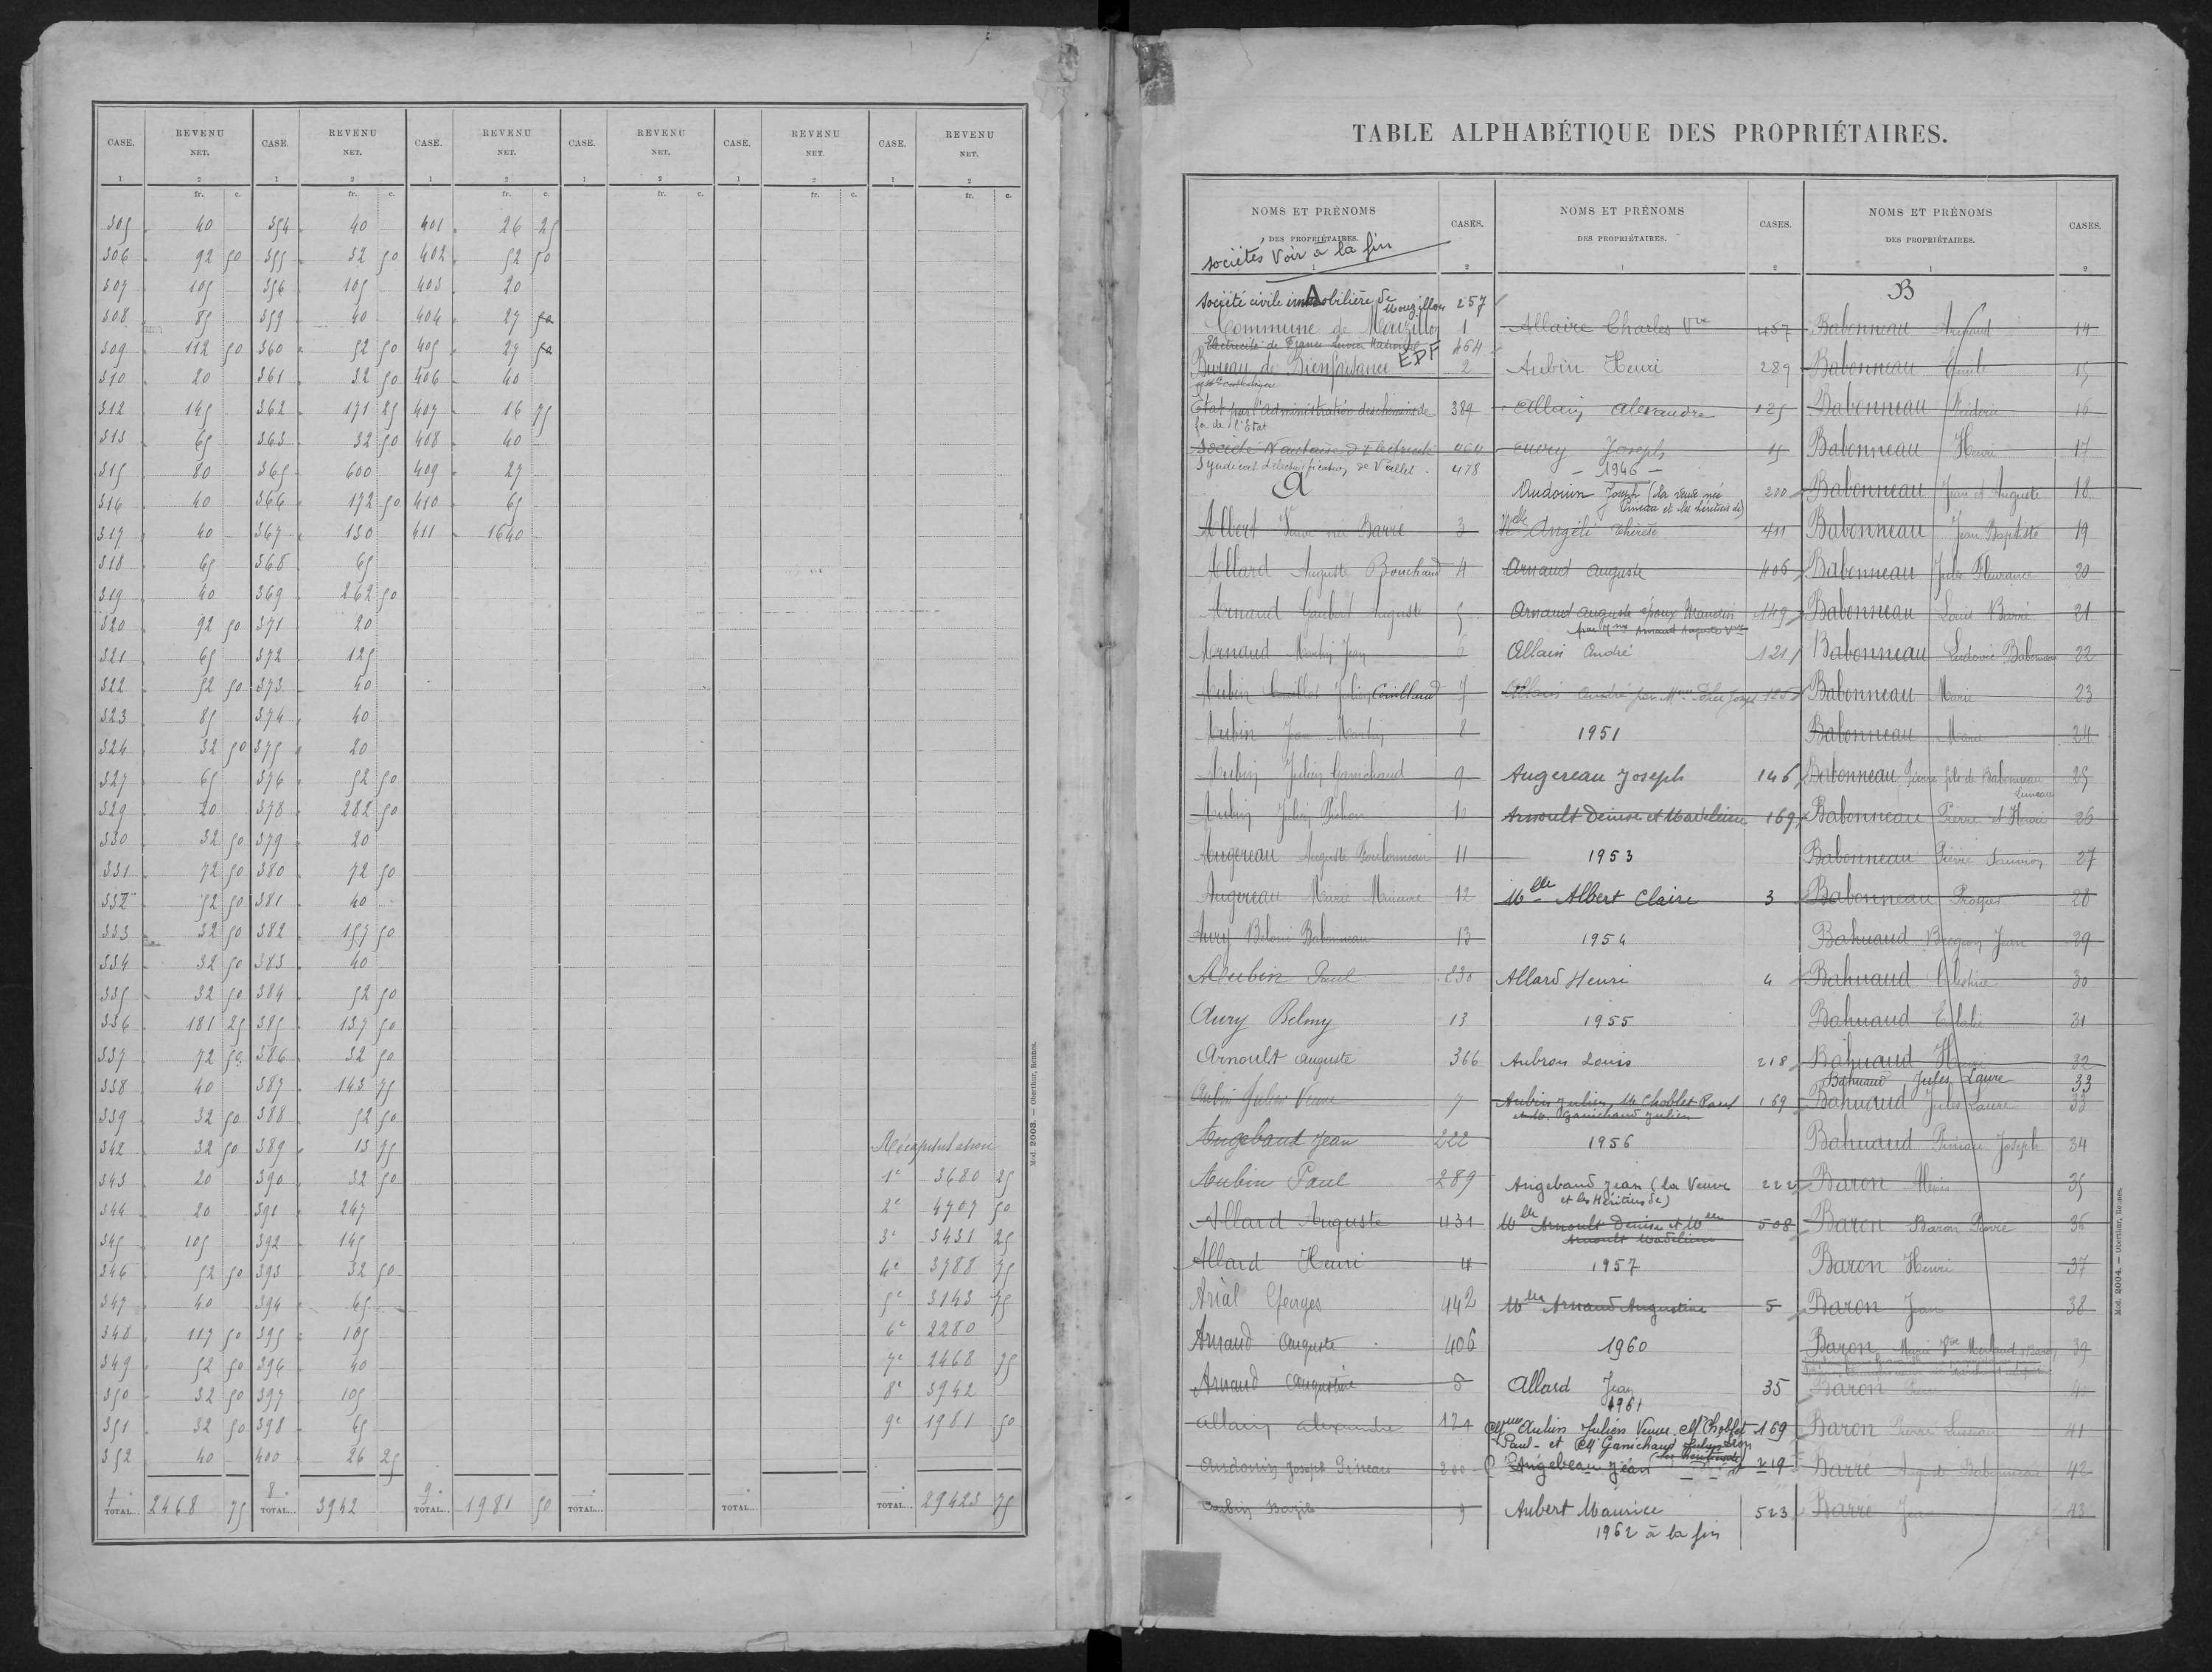 CASE. REVENU NET. CASE. REVENU NET. CASE. REVENU NET. CASE. REVENU NET. CASE. REVENU NET. CASE. REVENU NET.
1 2 1 2 1 2 1 2 1 2 1 2
fr. c. fr. c. fr. c. fr. c. fr. c. fr. c.
305 40 354 40 401 26 25
306 92 50 355 32 50 402 52 50
307 105 356 105 403 20
308 85 359 40 404 27 50
309 112 50 360 52 50 405 27 50
310 20 361 32 50 406 40
312 145 362 171 25 407 16 75
313 65 363 32 50 408 40
315 80 365 600 409 27
316 40 366 172 50 410 65
317 40 367 130 411 1640
318 65 368 65
319 40 369 262 50
320 92 50 371 20
321 65 372 125
322 52 50 373 40
323 85 374 40
324 32 50 375 20
327 65 376 52 50
329 20 378 282 50
330 32 50 379 20
331 72 50 380 72 50
332 52 50 381 40
333 32 50 382 157 50
334 32 50 383 40
335 32 50 384 52 50
336 181 25 385 137 50
337 72 50 386 32 50
338 40 387 143 75
339 32 50 388 52 50
342 32 50 389 13 75 Récapitulation
343 20 390 32 50 1e 3680 25
344 20 391 247 2e 4707 50
345 105 392 145 3e 3431 25
346 52 50 393 32 50 4e 3788 75
347 40 394 65 5e 3143 75
348 117 50 395 105 6e 2280
349 52 50 396 40 7e 2468 75
350 32 50 397 105 8e 3942
351 32 50 398 65 9e 1981 50
352 40 400 26 25
TOTAL... 2468 75 TOTAL... 3942 TOTAL... 1981 50 TOTAL... TOTAL... TOTAL... 29423 75
Mod. 2003. — Oberthur, Rennes.
TABLE ALPHABÉTIQUE DES PROPRIÉTAIRES.
NOMS ET PRÉNOMS DES PROPRIÉTAIRES. CASES. NOMS ET PRÉNOMS DES PROPRIÉTAIRES. CASES. NOMS ET PRÉNOMS DES PROPRIÉTAIRES. CASES.
1 2 1 2 1 2
sociétés Voir à la fin
A
Société civile immobilière de Mouzillon 257
Commune de Mouzillon 1
Electricité de France Service National EDF 464
Bureau de Bienfaisance 2
Etat par l'administration des chemins de 389
fer de l'Etat
Société Nantaise d'Electricité 464
Syndicat d'électrification de Vallet 478
A
Albert Veuve née Barré 3
Allard Auguste Bouchaud 4
Arnaud Gaubert Auguste 5
Arnaud Martin Jean 6
Aubin Julien Couillaud 7
Aubin Jean Martin 8
Aubin Julien Ganichaud 9
Aubin Julien Pichon 10
Augereau Auguste 11
Augereau Marie 12
Aury Beloni Babonneau 13
Aubin Paul 230
Aury Belmy 13
Arnoult Auguste 366
Aubin Julien Veuve 7
Angebaud Jean 222
Aubin Paul 289
Allard Auguste 431
Allard Henri 4
Arial Georges 442
Arnaud Auguste 406
Arnaud Augustine 5
Allain Alexandre 121
Audouin Joseph Pineau 200
Aubin Bazile 9
Allaire Charles Vve 457
Aubin Henri 289
Allain Alexandre 125
Aury Joseph 15
— 1946 —
Audouin Joseph (la veuve née 200
Pineau et les héritiers de)
Melle Angéli Thérèse 411
Arnaud Auguste 406
Arnaud Auguste époux Mandin 149
par Mme Arnaud Auguste Vve
Allain André 121
Allain André par Mme 125
1951
Augereau Joseph 146
Arnoult Denise et Madeleine 169
1953
Melle Albert Claire 3
1954
Allard Henri 4
1955
Aubron Louis 218
Aubin Julien, M. Choblet Paul 169
et M. Ganichaud Julien
1956
Angebaud Jean (la Veuve 222
et les Héritiers de)
Melle Arnoult Denise et Melle 508
Arnoult Madeleine
1957
Melle Arnaud Augustine 5
1960
Allard Jean 35
1961
Mme Aubin Julien Veuve, M. Choblet 169
Paul et M. Ganichaud
Angebeau Jean 219
Aubert Maurice 523
1962 à la fin
B
Babonneau Armand 14
Babonneau Emile 15
Babonneau Frédéric 16
Babonneau Henri 17
Babonneau Jean et Auguste 18
Babonneau Jean Baptiste 19
Babonneau Jules Fleurance 20
Babonneau Louis Barré 21
Babonneau Ludovic Babonneau 22
Babonneau Marie 23
Babonneau Marie 24
Babonneau Pierre fils de Babonneau 25
Babonneau Pierre et Henri 26
Babonneau Pierre 27
Babonneau Prosper 28
Bahuaud Jean 29
Bahuaud Célestine 30
Bahuaud Eulalie 31
Bahuaud Henri 32
Bahuaud Jules Laure 33
Bahuaud Jules Laure 33
Bahuaud Pineau Joseph 34
Baron Alexis 35
Baron Baron Pierre 36
Baron Henri 37
Baron Jean 38
Baron Marie Vve 39
Baron 40
Baron Pierre Luneau 41
Barré August Babonneau 42
Barré Jean 43
Mod. 2004. — Oberthur, Rennes.